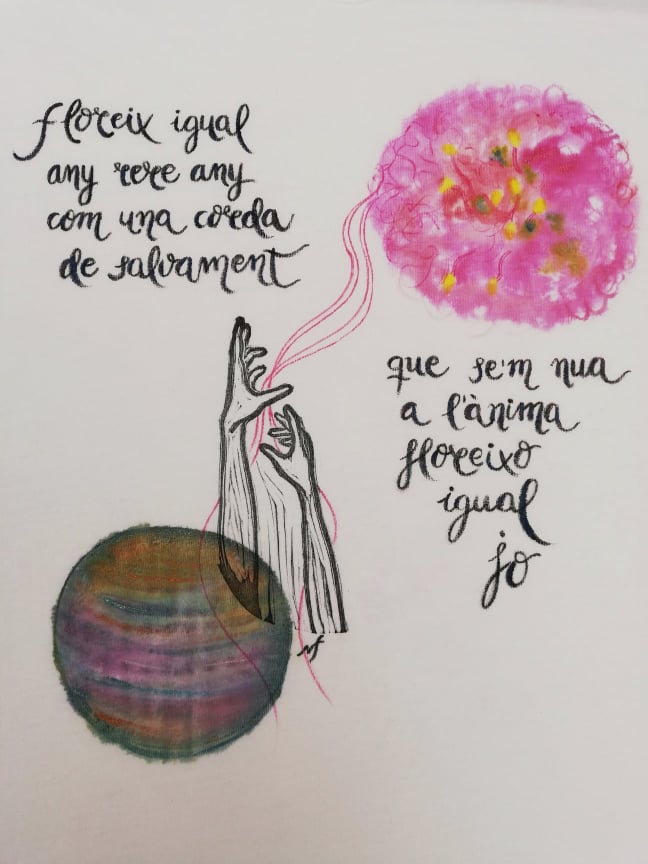 floreix igual
any rere any
com una corda
de salvament
que se'm nua
a l'ànima
floreixo
igual
jo